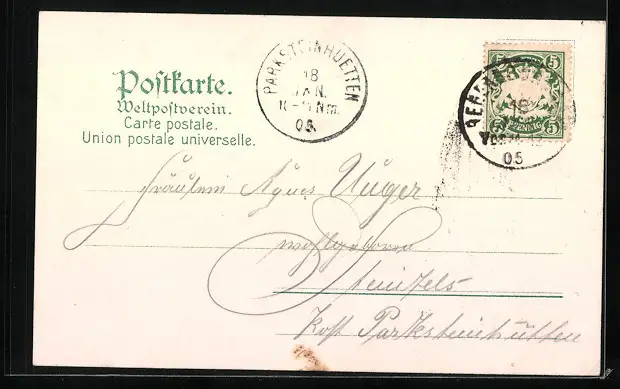 Postkarte.
Weltpostverein.
Carte postale.
Union postale universelle.
PARKSTEINHUETTEN
18
JAN.
Nm.
05.
5 5
18
05
PFENNIG
5 5
Fräulein Agnes Unger
wohlgeboren
Steinfels
Post Parksteinhütten